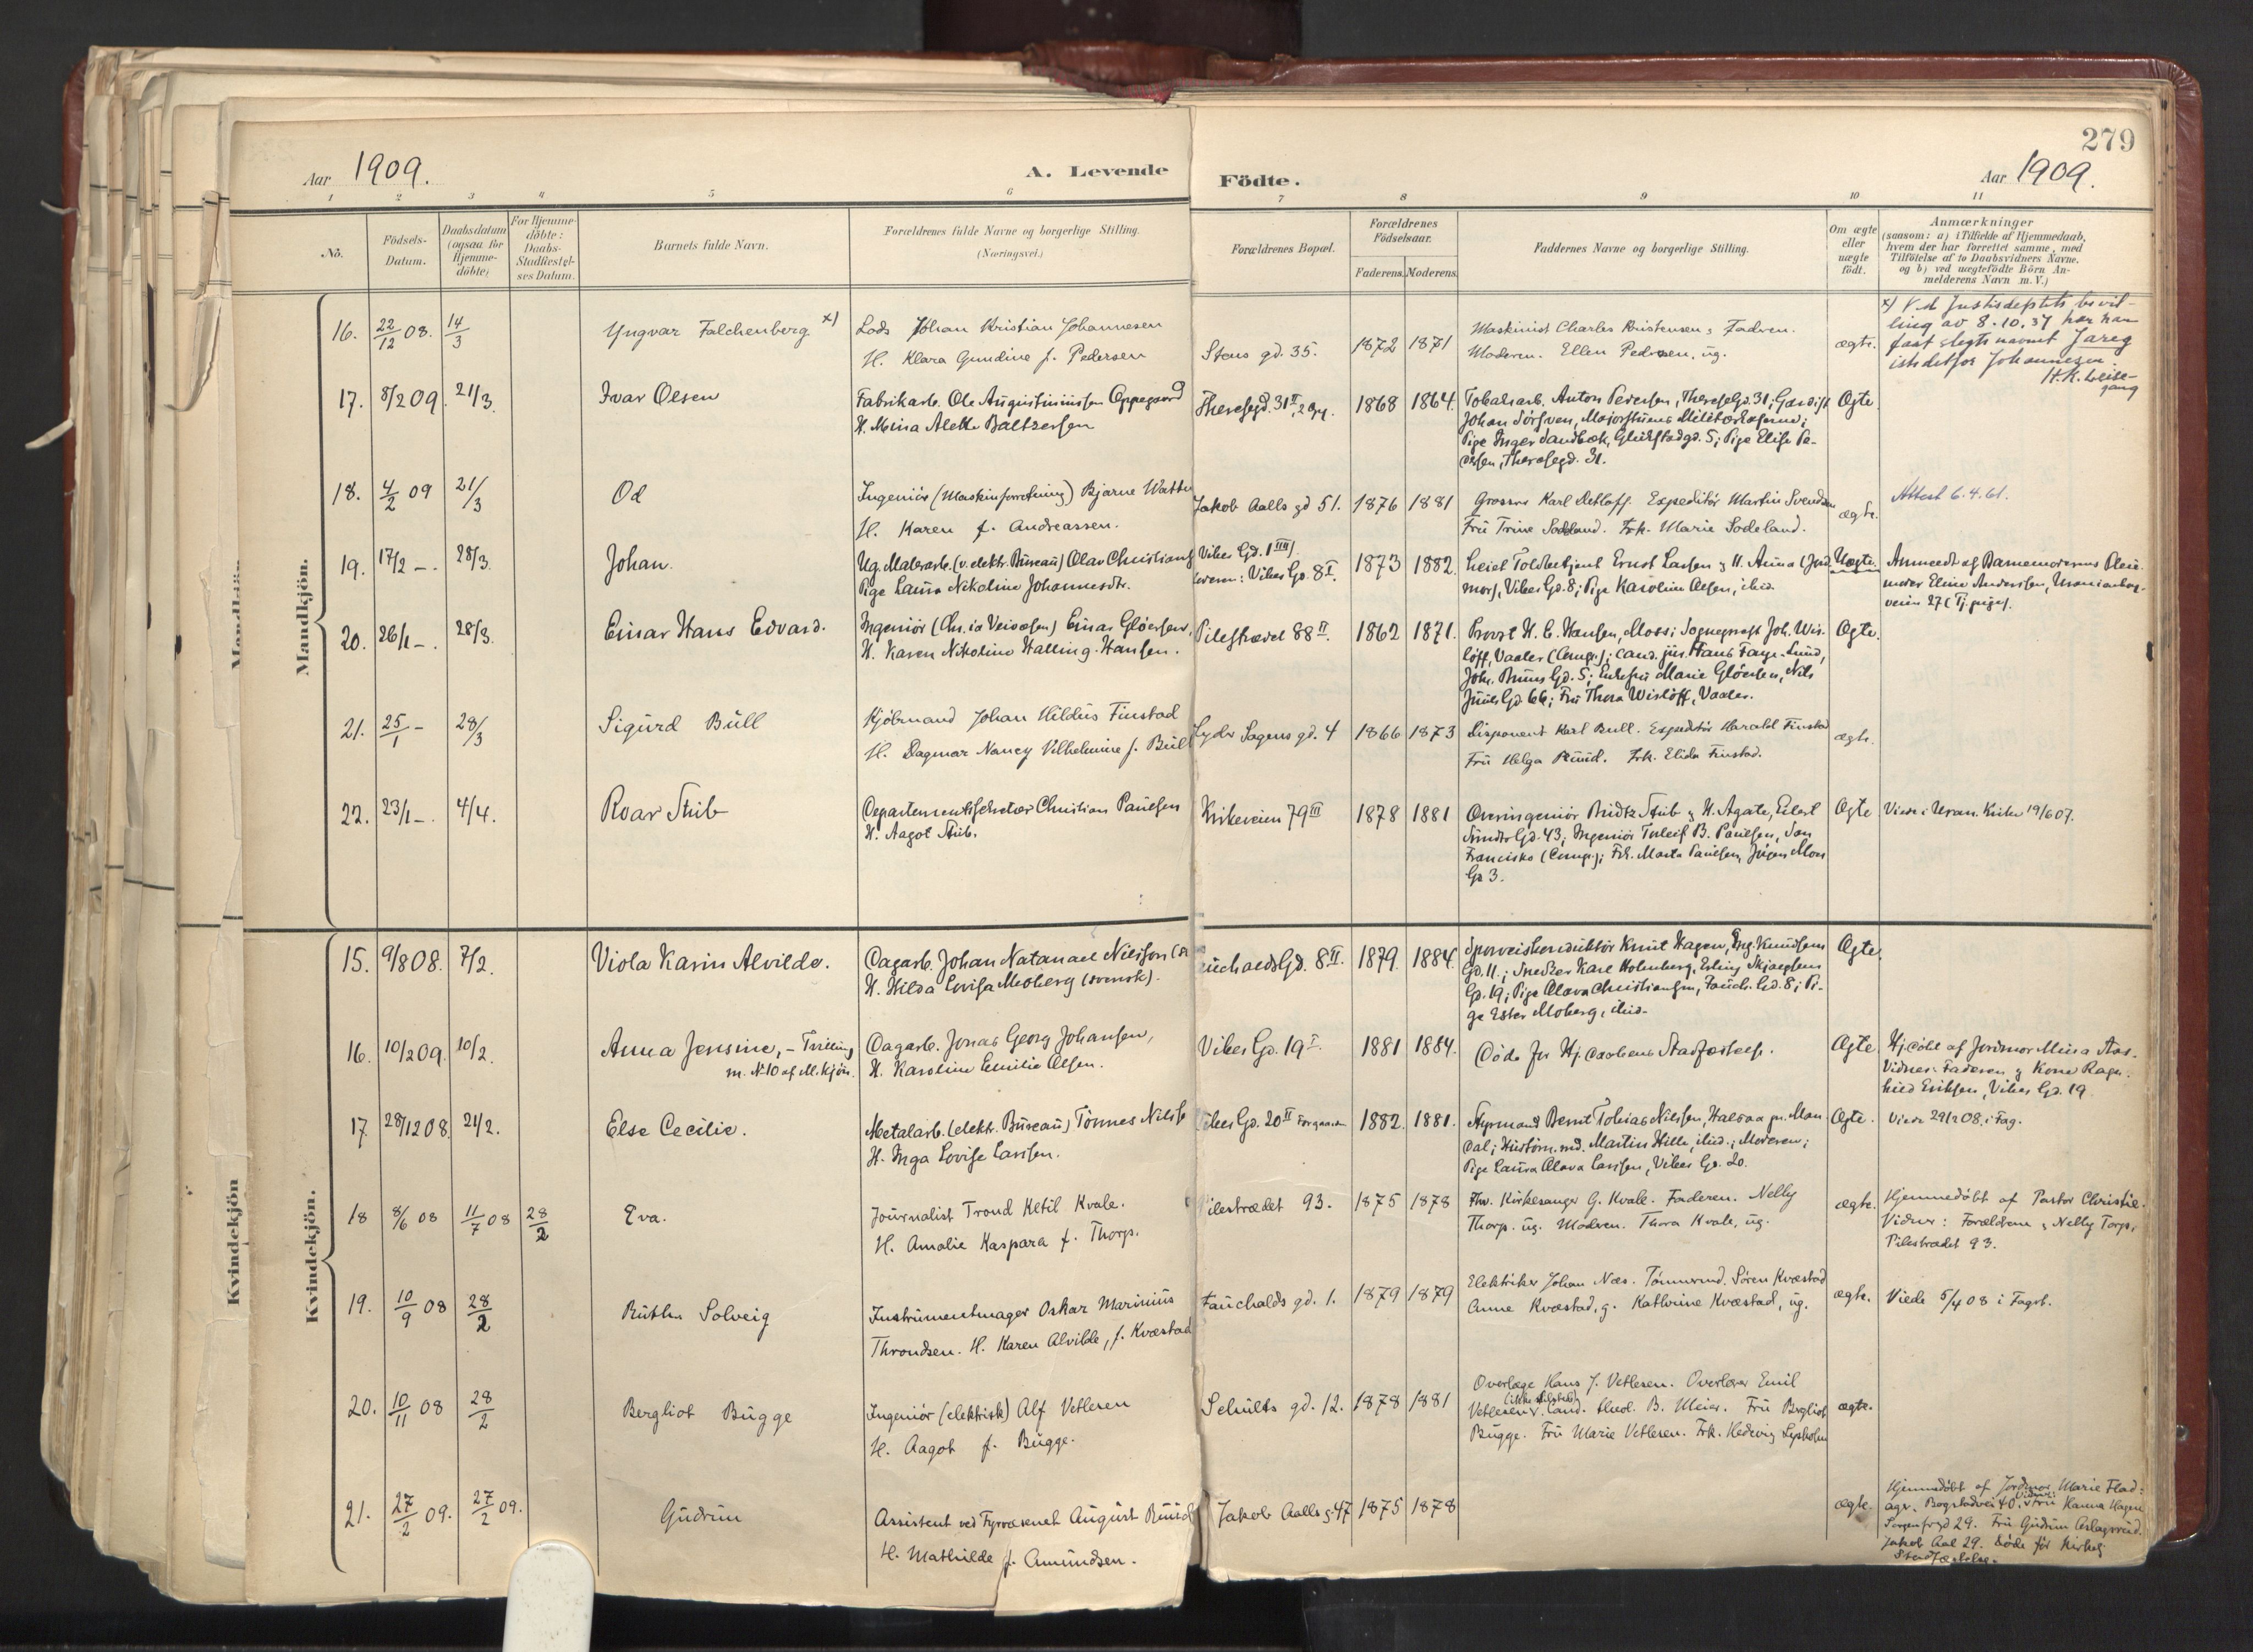 279
Aar 1909.
A. Levende
Födte.
Aar 1909.
1 2 3 4 5 6 7 8 9 10 11
No.
Födsels-
Datum.
Daabsdatum
(ogsaa for
Hjemme-
döbte)
For Hjemme-
döbte:
Daabs-
Stadfæstel-
ses Datum.
Barnets fulde Navn.
Forældrenes fulde Navne og borgerlige Stilling.
(Næringsvei.)
Forældrenes Bopæl.
Forældrenes
Födselsaar.
Faderens. Moderens.
Faddernes Navne og borgerlige Stilling.
Om ægte
eller
uægte
födt.
Anmærkninger
(saasom: a) i Tilfælde af Hjemmedaab,
hvem der har forrettet samme, med
Tilföielse af to Daabsvidners Navne.
og b) ved uægtefödte Börn An-
melderens Navn m.V.)
Mandkjön.
16. 22/12 08. 14/3
Yngvar Falchenberg x)
Lods Johan Kristian Johannesen
H. Klara Gundine f. Pedersen
Stens gd. 35.
1872 1871
Maskinist Charles Kristensen & Faderen.
Moderen. Ellen Pedersen, ug.
ægte.
x) V. de Justisdeptets bevil-
ling av 8.10.37 har han
faat slegtsnavnet Jareg
istedetfor Johannesen.
17. 8/2 09. 21/3.
Ivar Olsen
Fabrikarb. Ole Augustinussen Oppegaard
H. Mina Alette Baltzersen
Theresegd. 31 II, 2 Opg.
1868 1864.
Tobaksarb. Anton Pedersen, Therese Gd. 31; Gardist
Johan Sörsveen, Majorstuens Militærkaserne;
Pige Inger Sandbæk, Glückstadgd. 5; Pige Elise Pe-
dersen, Theresegd. 31.
Ægte.
18. 4/2 09 21/3
Od
Ingeniör (Maskinforretning) Bjarne Watt
H. Karen f. Andreassen.
Jakob Aalls gd 51.
1876 1881
Grosser Karl Detloff. Expeditör Martin Svendsen
Fru Trine Sodeland. Frk. Marie Sodeland.
ægte.
Attest 6.4.61.
19. 17/2 -. 28/3.
Johan.
Ug. Malerarb. (v. elektr. Bureau) Olav Christians
Pige Laura Nikoline Johannesdtr.
Vibes Gd. 1 IIII
Vibes Gd. 8 I.
1873 1882.
Toldbetjent Ernst Larsen & H. Anna (Jord-
mor), Vibes Gd. 8; Pige Karoline Olsen, ibid.
Uægte.
Anmeldt af Barnemoderens Pleie-
moder Eline Andersen, Uranienborg-
veien 27 (Tj.pige).
20. 26/1 -. 28/3.
Einar Hans Edvard.
Ingeniör (Chr.ia Veivæsen) Einar Glöersen,
H. Karen Nikoline Halling-Hansen.
Pilestrædet 88 II.
1862 1871.
Provst H. C. Hansen, Moss; Sogneprest Joh. Wis-
löff, Vaaler; cand. jur. Hans Faye-Lund,
Johs. Bruns Gd. 5; Enkefru Marie Glöersen, Nils
Juels Gd. 66; Fru Thora Wislöff, Vaaler.
Ægte.
21. 25/1 - 28/3
Sigurd Bull
Kjöbmand Johan Hildus Finstad
H. Dagmar Nancy Vilhelmine f. Bull
Lyder Sagens gd. 4
1866 1873
Disponent Karl Bull. Expeditör Harald Finstad
Fru Helga Ruud. Frk. Elida Finstad.
ægte.
22. 23/1 -. 4/4.
Roar Stub
Departementssekretær Christian Paulsen
H. Aagot Stub.
Kirkeveien 79 III
1878 1881
Overingeniör Bridtz Stub & H. Agate, Eilert
Sundts Gd. 43; Ingeniör Torleif B. Paulsen, San
Francisko; Frk. Marta Paulsen, Jörgen Moes
Gd 3.
Ægte
Viede i Uran. Kirke 19/6 07.
Kvindekjön.
15. 9/8 08. 7/2.
Viola Karin Alvilde.
Dagarb. Johan Natanael Nilsson (
H. Hilda Lovisa Moberg (svensk).
auchalds Gd. 8 II.
1879. 1884.
Sporveiskonduktör Knut Hagen, Ing. Knudsens
Gd. 11; Snedker Karl Holmberg, Erling Skjalgsens
Gd. 19; Pige Olava Christiansen, Fauch. Gd. 8; Pi-
ge Ester Moberg, ibid.
Ægte.
16. 10/2 09. 10/2.
Anna Jensine, - Tvilling
m. No 10 af M.kjön.
Dagarb. Jonas Georg Johansen,
H. Karoline Emilie Olsen.
Vibes Gd. 19 I.
1881 1884.
Döde för Hj.daabens Stadfæstelse.
Ægte
Hj.döbt af Jordmor Mina Aas.
Vidner: Faderen & Kone Ragn-
hild Eriksen, Vibes Gd. 19.
17. 28/12 08. 21/2.
Else Cecilie.
Metalarb. (elektr. Bureau) Tönnes Nilse
H. Inga Lovise Larsen.
Vibes Gd. 20 II Forgaarden
1882. 1881.
Styrmand Bernt Tobias Nilsen, Halsaa pr. Man-
dal; Martin Hille, ibid.; Moderen;
Pige Laura Olava Larsen, Vibes Gd. 20.
Ægte.
Viede 29/2 08. i Fag.
18 8/6 08 11/7 08 28/2
Eva.
Journalist Trond Ketil Kvale.
H. Amalie Kaspara f. Thorp.
Pilestrædet 93.
1875 1878
Fhv. Kirkesanger G. Kvale. Faderen. Nelly
Thorp. ug. Moderen. Thora Kvale, ug.
ægte.
Hjemmedöbt af Pastor Christie.
Vidner: Forældrene & Nelly Torp,
Pilestrædet 93.
19. 10/9 08 28/2
Ruth Solveig
Instrumentmager Oskar Marinius
Throndsen. H. Karen Alvilde, f. Kvæstad
Fauchalds gd. 1.
1879 1879
Elektriker Johan Næs. Tömmermd. Sören Kvæstad
Anne Kvæstad, g. Kathrine Kvæstad, ug.
ægte.
Viede 5/4 08 i Fagrb.
20. 10/11 08 28/2
Bergliot Bugge
Ingeniör (elektrisk) Alf Vetlesen
H. Aagot f. Bugge.
Schults gd. 12.
1878 1881
Overlæge Hans J. Vetlesen. Overlærer Emil
Vetlesen. Cand. theol. B. Meier. Fru Bergliot
Bugge. Fru Marie Vetlesen. Frk. Hedevig Lysholm
ægte.
21. 27/2 09. 27/2 09.
Gudrun
Assistent ved Fyrvæsenet August Ruud
H. Mathilde f. Amundsen.
Jakob Aalls g. 47
1875 1878
ægte.
Hjemmedöbt af Jordmor Marie Flad-
ager. Bogstadvei 40. Vidner: Fru Hanna Hagen
Sorgenfrigd 29. Fru Gudrun Aslagsrud.
Jakob Aal 29. Döde för kirkelig
Stadfæstelse.
Mandkjön
Kvindekjön